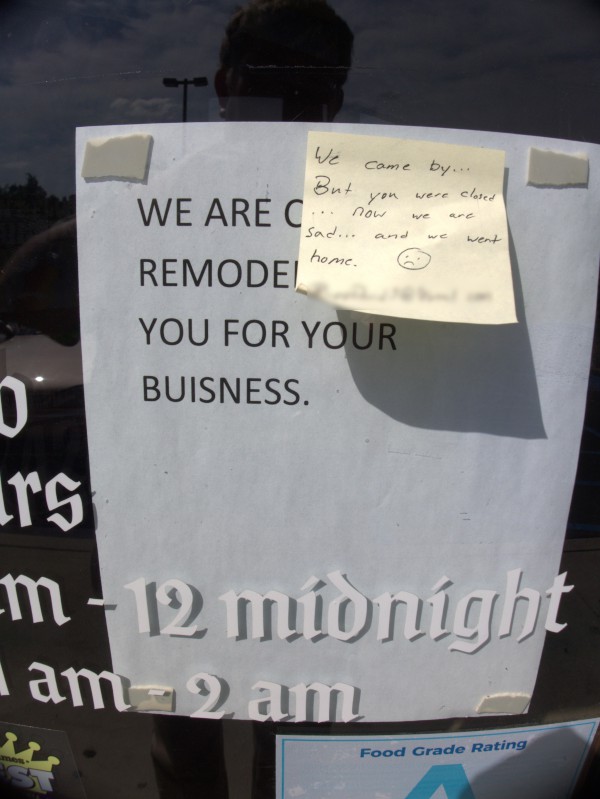 We came by...
But you were closed
... now we are
sad... and we went
home.
WE ARE
REMODE
YOU FOR YOUR
BUISNESS.
rs
m - 12 midnight
am - 2 am
Food Grade Rating
A
ST